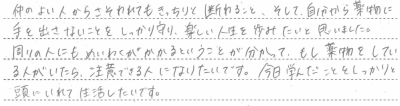 仲のよい人からさそわれてもきっちりと断わること、そして、自分から薬物に
手を出さないことをしっかり守り、楽しい人生を歩みたいと思いました。
周りの人にもめいわくがかかるということが分かって、もし薬物をしてい
る人がいたら、注意できる人になりたいです。今日学んだことをしっかりと
頭にいれて生活したいです。